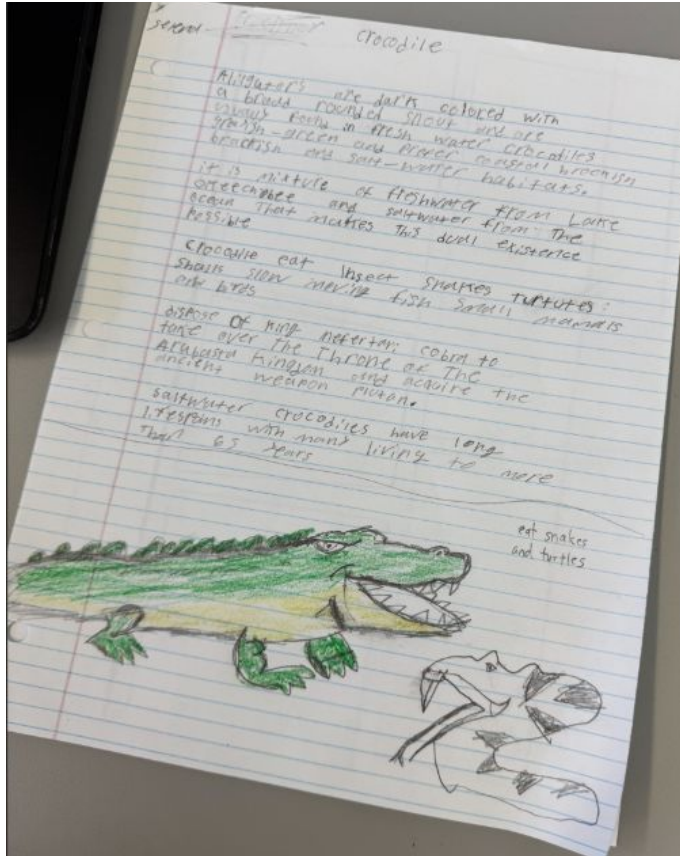 several
crocodile
Alligators are dark colored with
a broad rounded snout and are
usually found in fresh water crocodiles
grayish-green and prefer coastal brackish
brackish and salt-water habitats.
it is mixture of freshwater from Lake
and saltwater from the
ocean That makes This dual existence
Possible
Crocodile eat Insect snakes turtutes:
Snails slow moving fish Small mamals
and birds
dispose of king nefertari cobra to
take over The Throne of The
Arabasta Kingdom and acquire the
ancient weapon Plutan.
Saltwater crocodiles have long
lifespans with many living to more
Than 65 years
eat snakes
and turtles